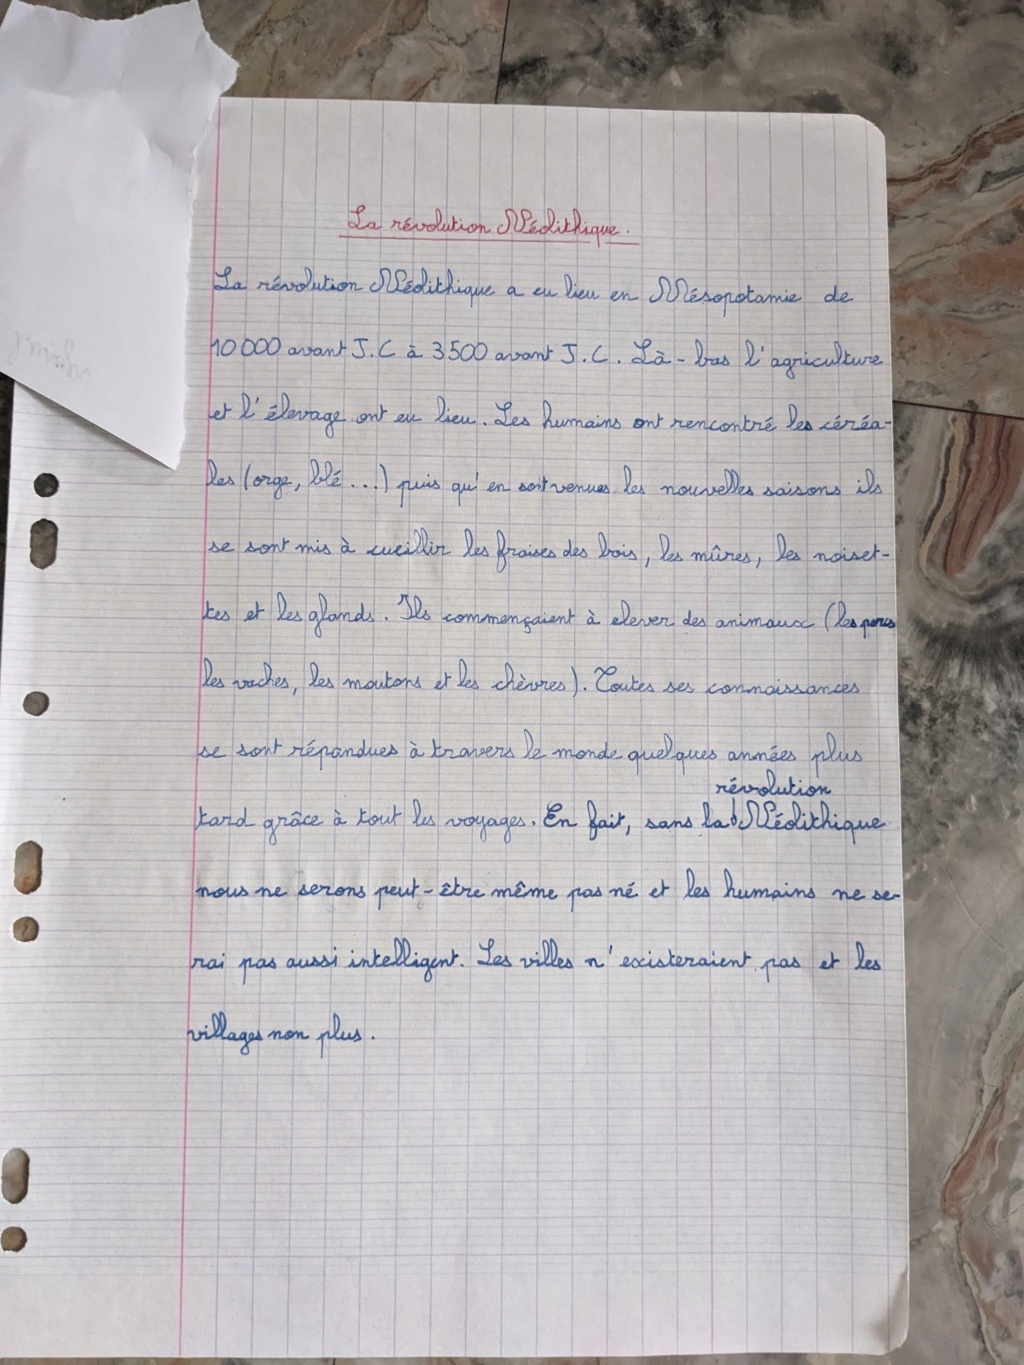 La révolution Néolithique.
La révolution Néolithique a eu lieu en Mésopotamie de
10 000 avant J.C à 3 500 avant J.C. Là-bas l'agriculture
et l'élevage ont eu lieu. Les humains ont rencontré les céréa-
les (orge, blé ...) puis qu'en sont venues les nouvelles saisons ils
se sont mis à cueillir les fraises des bois, les mûres, les noiset-
tes et les glands. Ils commençaient à elever des animaux (les porcs
les vaches, les moutons et les chèvres). Toutes ses connaissances
se sont répandues à travers le monde quelques années plus
révolution
tard grâce à tout les voyages. En fait, sans la Néolithique
nous ne serons peut-être même pas né et les humains ne se-
rai pas aussi intelligent. Les villes n'existeraient pas et les
villages non plus.